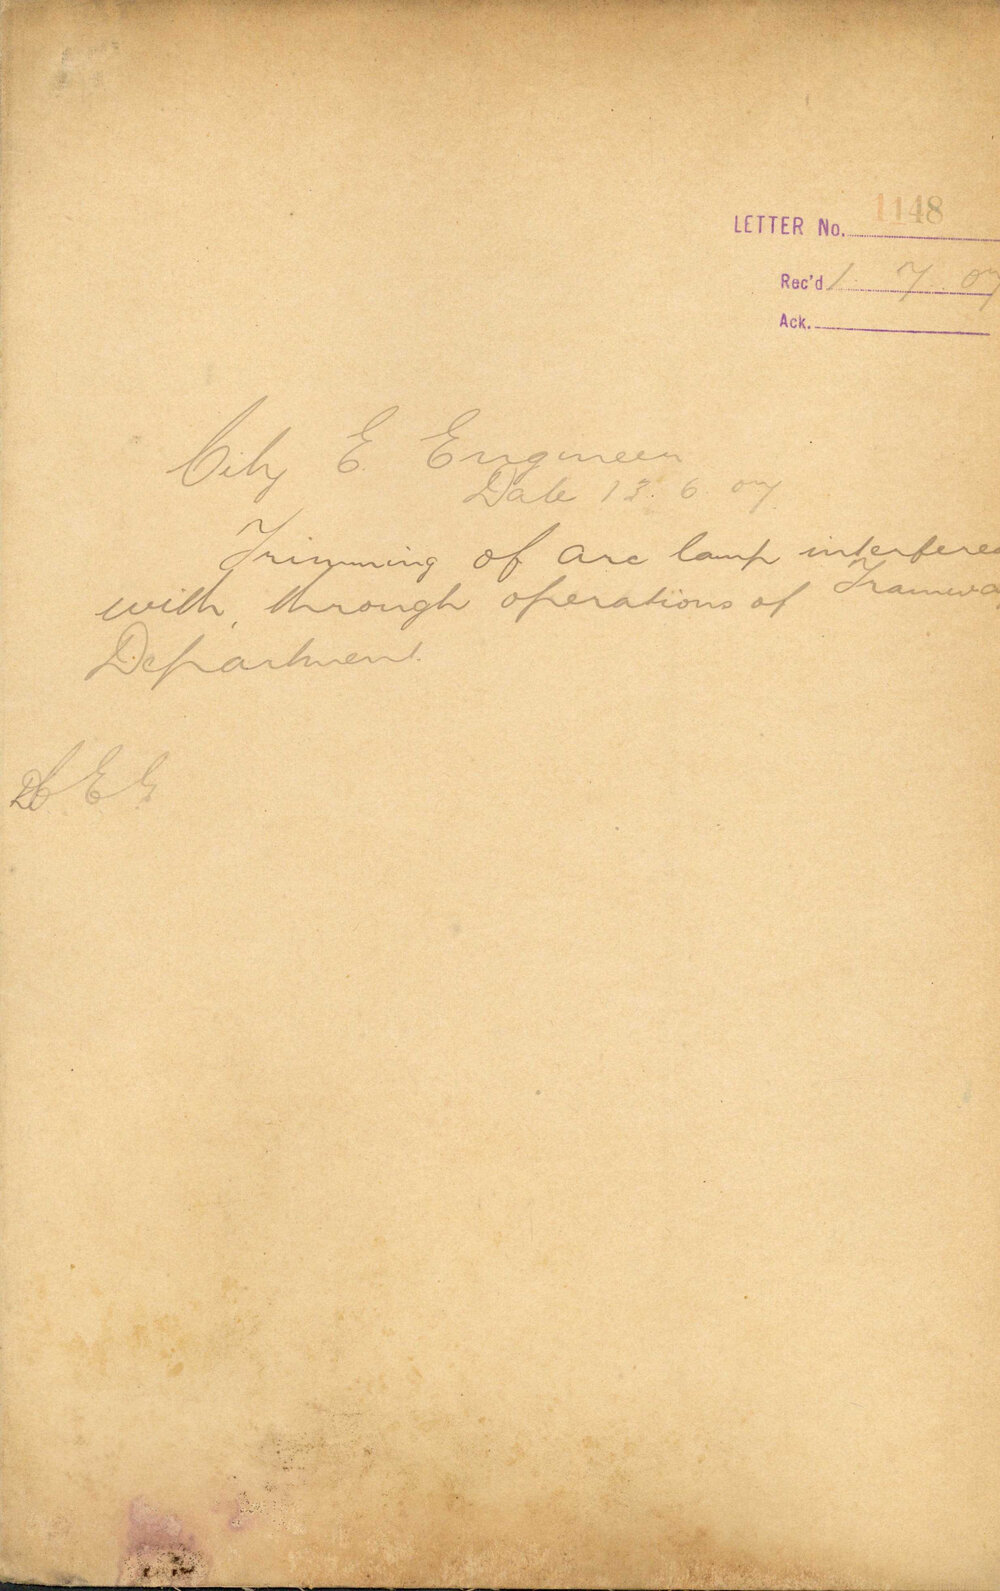 LETTER No. 1148
Rec'd 1. 7. 07
Ack.
City E. Engineer
Date 13. 6. 07
Trimming of arc lamp interfere
with, through operations of Tramwa
Department.
C E E